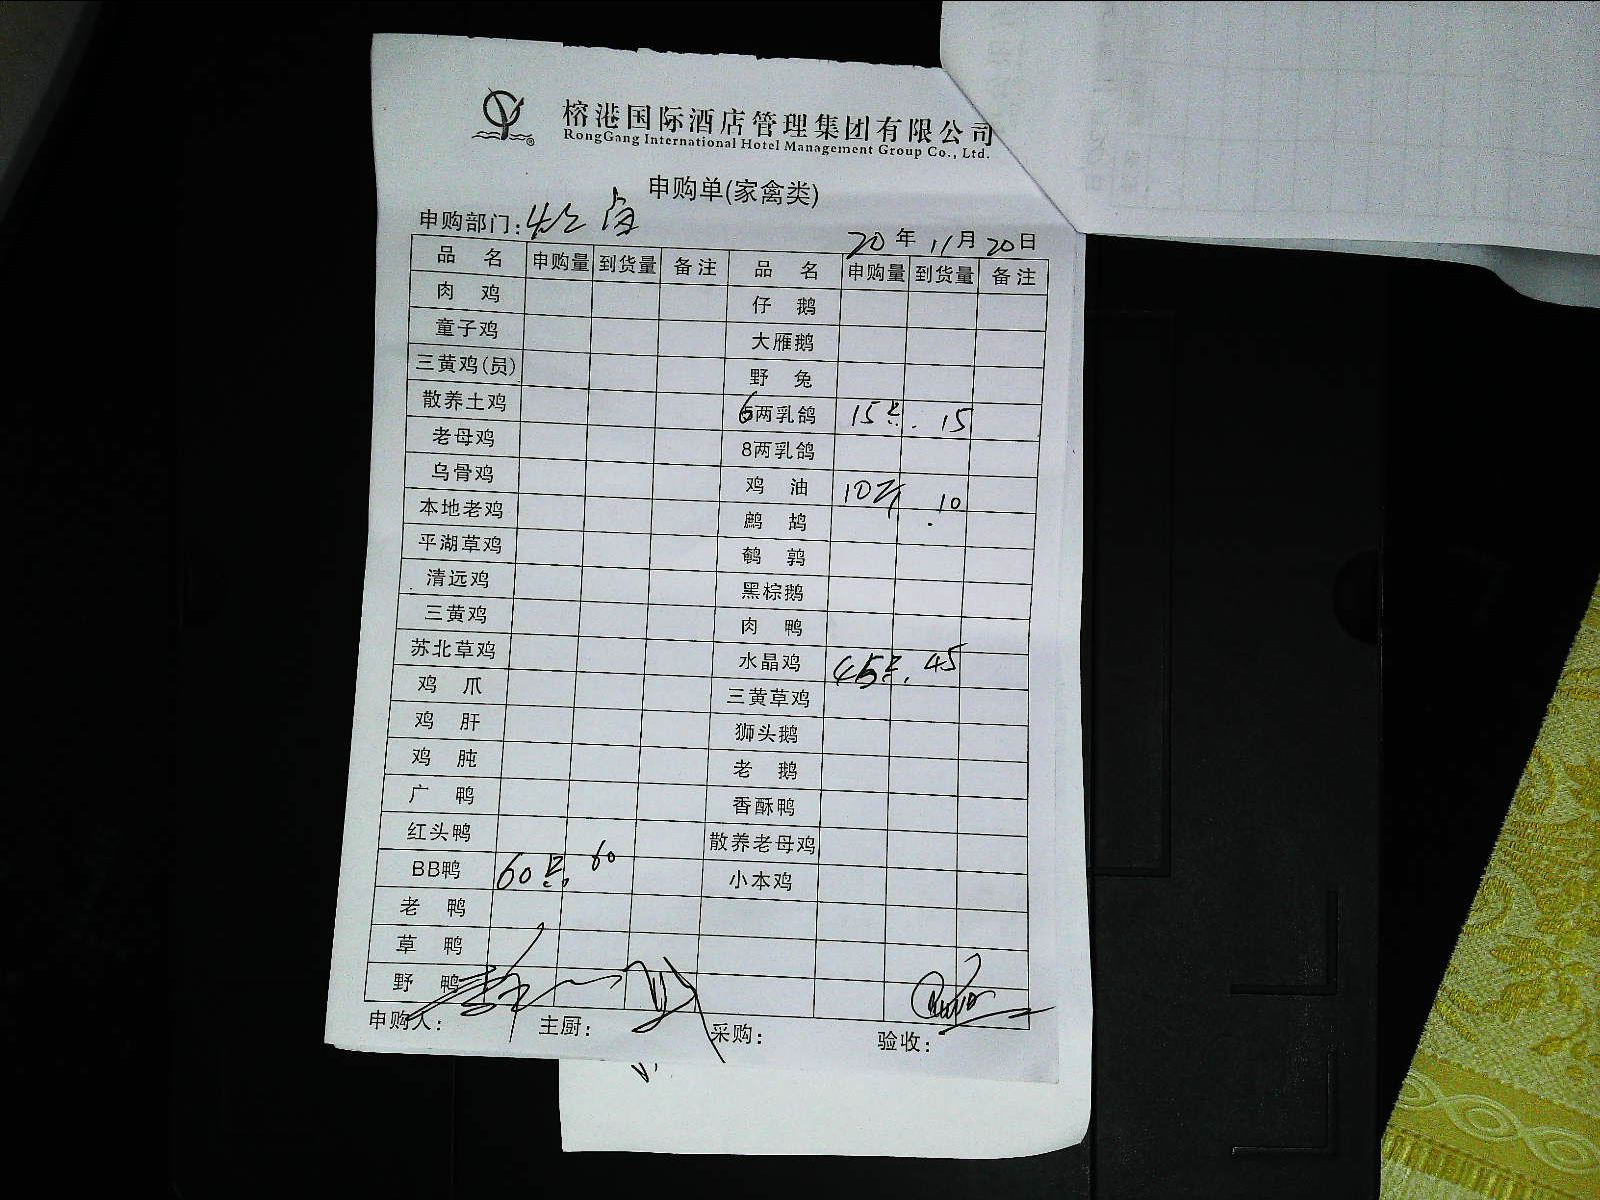 榕港国际酒店管理集团有限公司
RongGang International Hotel Management Group Co., Ltd.
申购单(家禽类)
申购部门:
20年 11月 20日
品 名 申购量 到货量 备注 品 名 申购量 到货量 备注
肉 鸡 仔 鹅
童子鸡 大雁鹅
三黄鸡(员) 野 兔
散养土鸡 6两乳鸽 15只. 15
老母鸡 8两乳鸽
乌骨鸡 鸡 油 10斤 10
本地老鸡 鹧 鸪
平湖草鸡 鹌 鹑
清远鸡 黑棕鹅
三黄鸡 肉 鸭
苏北草鸡 水晶鸡 45只. 45
鸡 爪 三黄草鸡
鸡 肝 狮头鹅
鸡 肫 老 鹅
广 鸭 香酥鸭
红头鸭 散养老母鸡
BB鸭 60只. 60 小本鸡
老 鸭
草 鸭
野 鸭
申购人: 主厨: 采购: 验收: